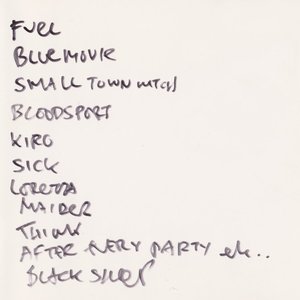 FUEL
BLUE MOVIE
SMALL TOWN WITCH
BLOODSPORT
KIRO
SICK
LORETTA
MAIDEZ
THINK
AFTER EVERY PARTY etc..
BLACK SHEEP